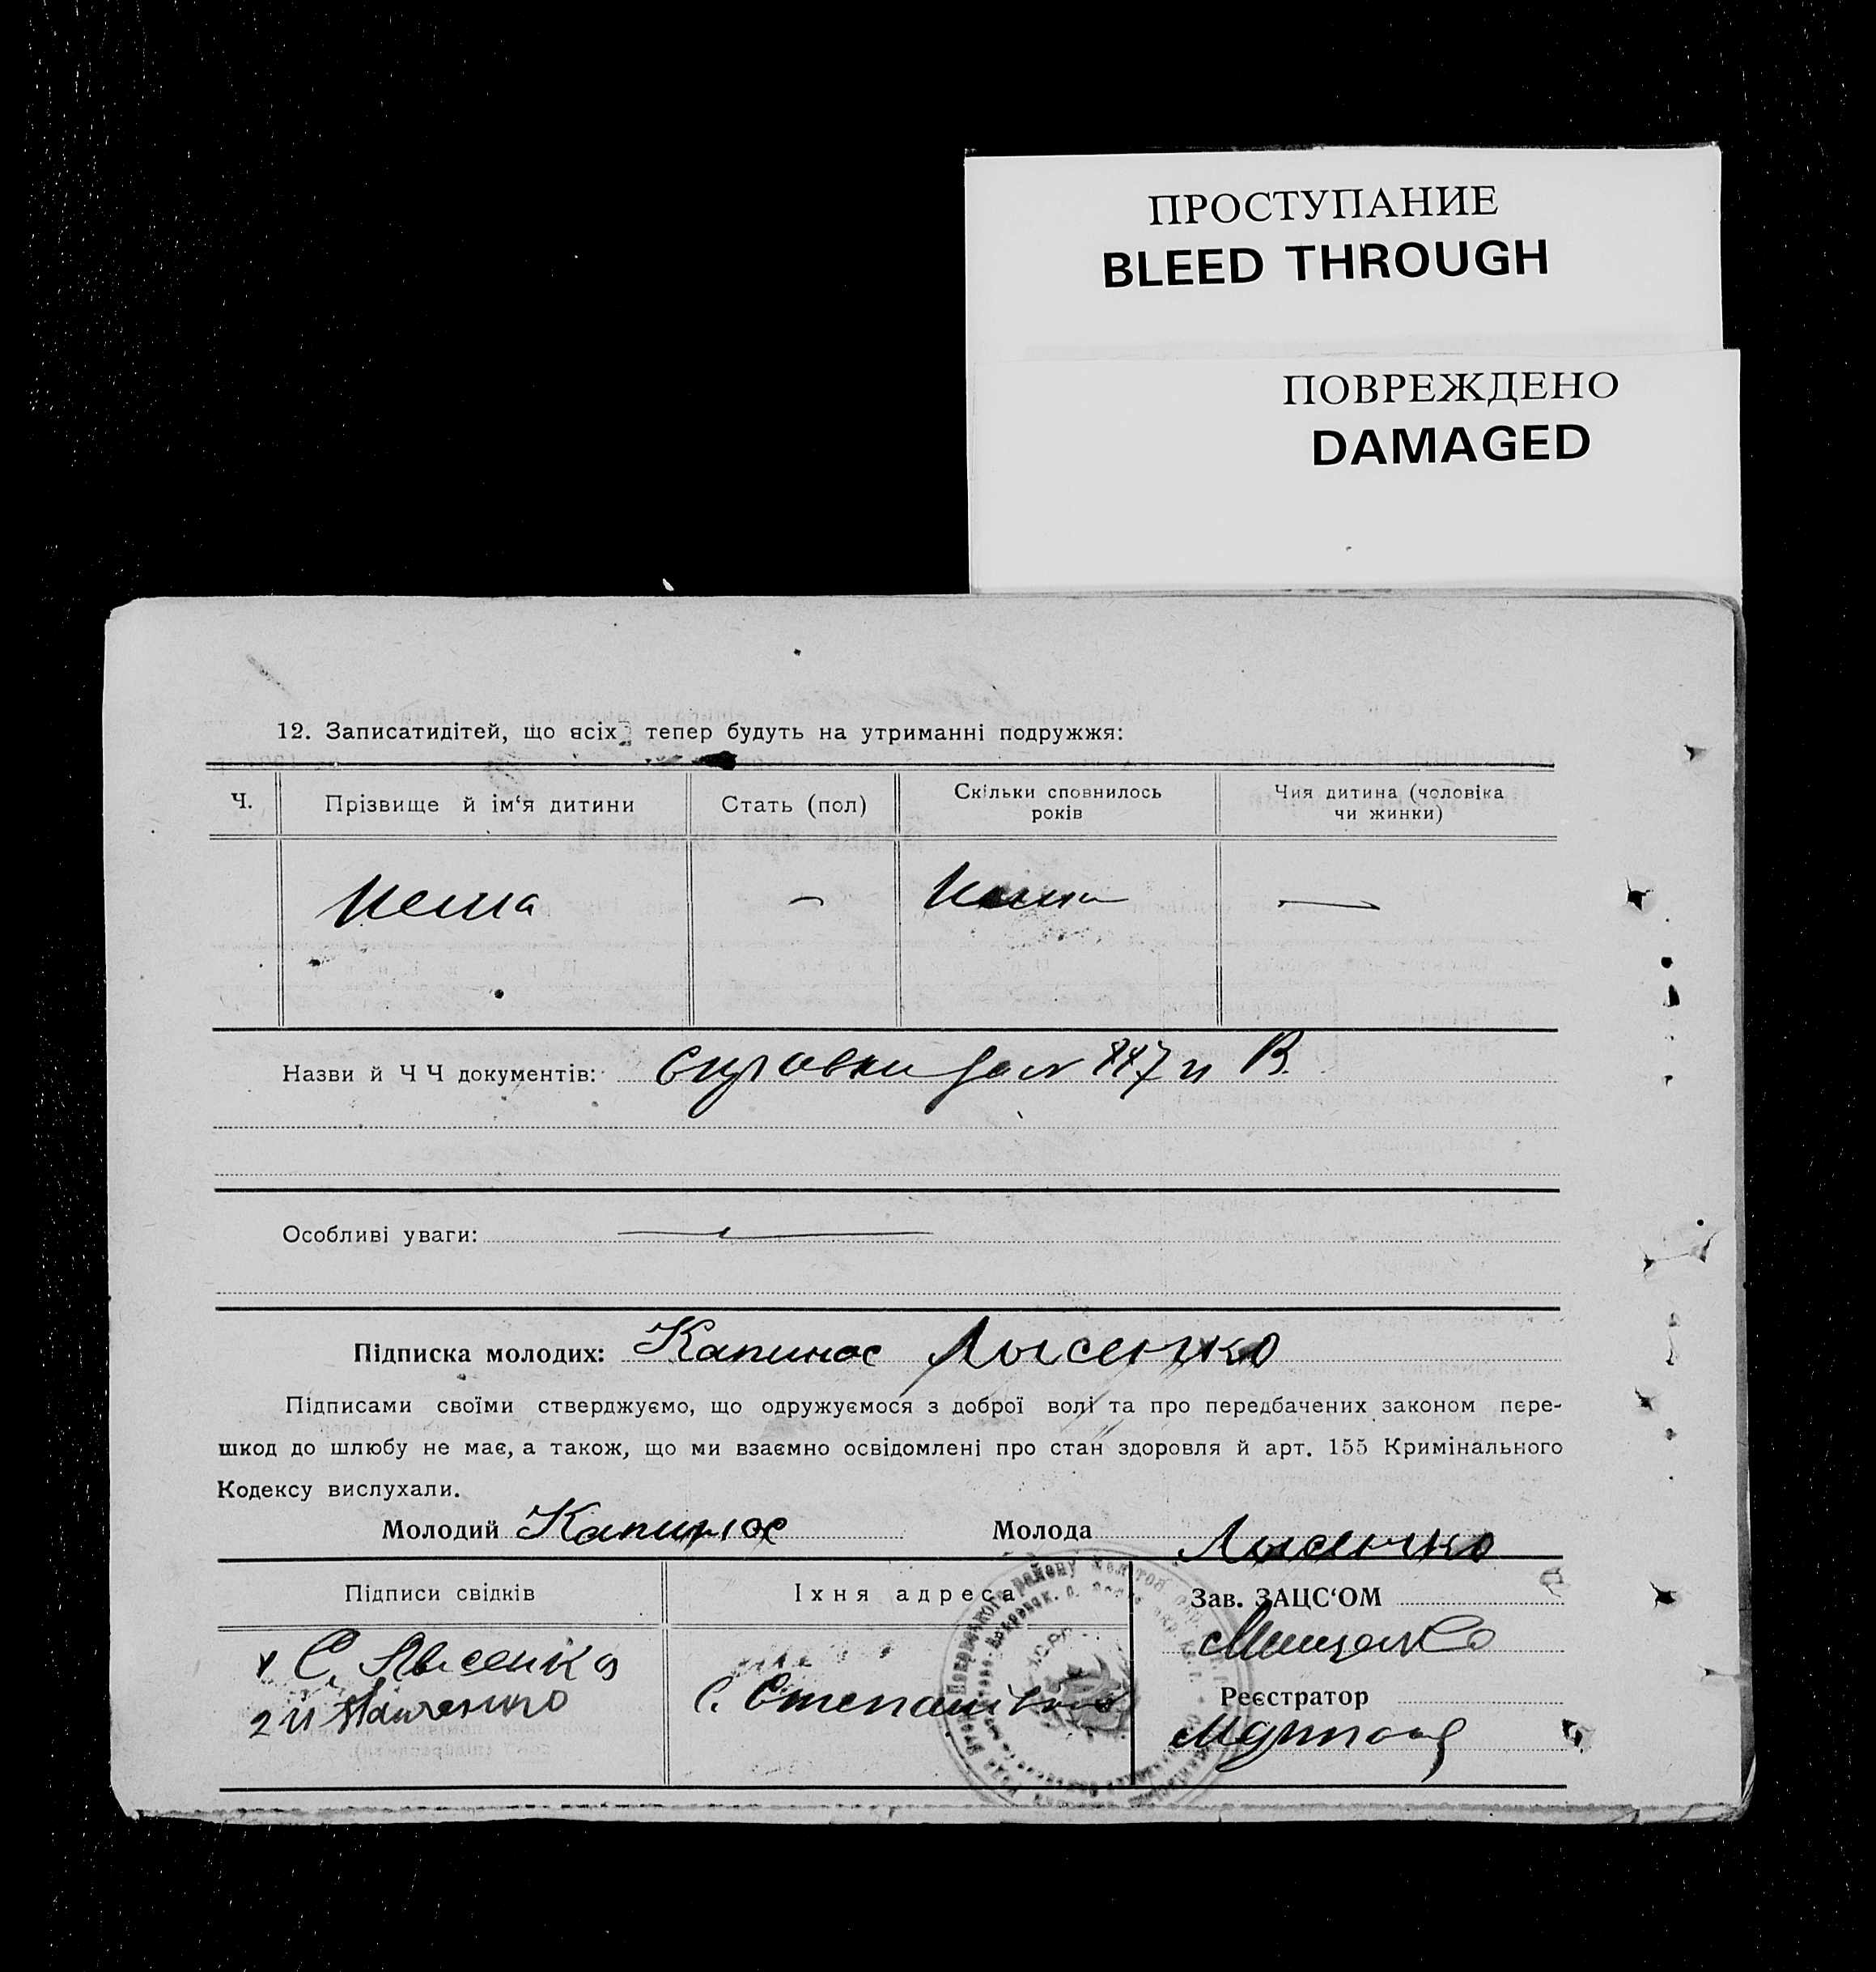 ПРОСТУПАНИЕ
BLEED THROUGH
ПОВРЕЖДЕНО
DAMAGED
12. Записатидітей, що всіх тепер будуть на утриманні подружжя:
Ч.
Прізвище й ім‘я дитини
Стать (пол)
Скільки сповнилось
років
Чия дитина (чоловіка
чи жинки)
Нема
—
Нема
—
Назви й Ч Ч документів: Справки за № 887 и В.
Особливі уваги: —
Підписка молодих: Капинос Лысенко
Підписами своїми стверджуємо, що одружуємося з доброї волі та про передбачених законом пере-
шкод до шлюбу не має, а також, що ми взаємно освідомлені про стан здоровля й арт. 155 Кримінального
Кодексу вислухали.
Молодий Капинос Молода Лысенко
Підписи свідків
Їхня адреса
Зав. ЗАЦС‘ОМ
1 С. Лысенко
2 И
с. Степанівка
Реєстратор